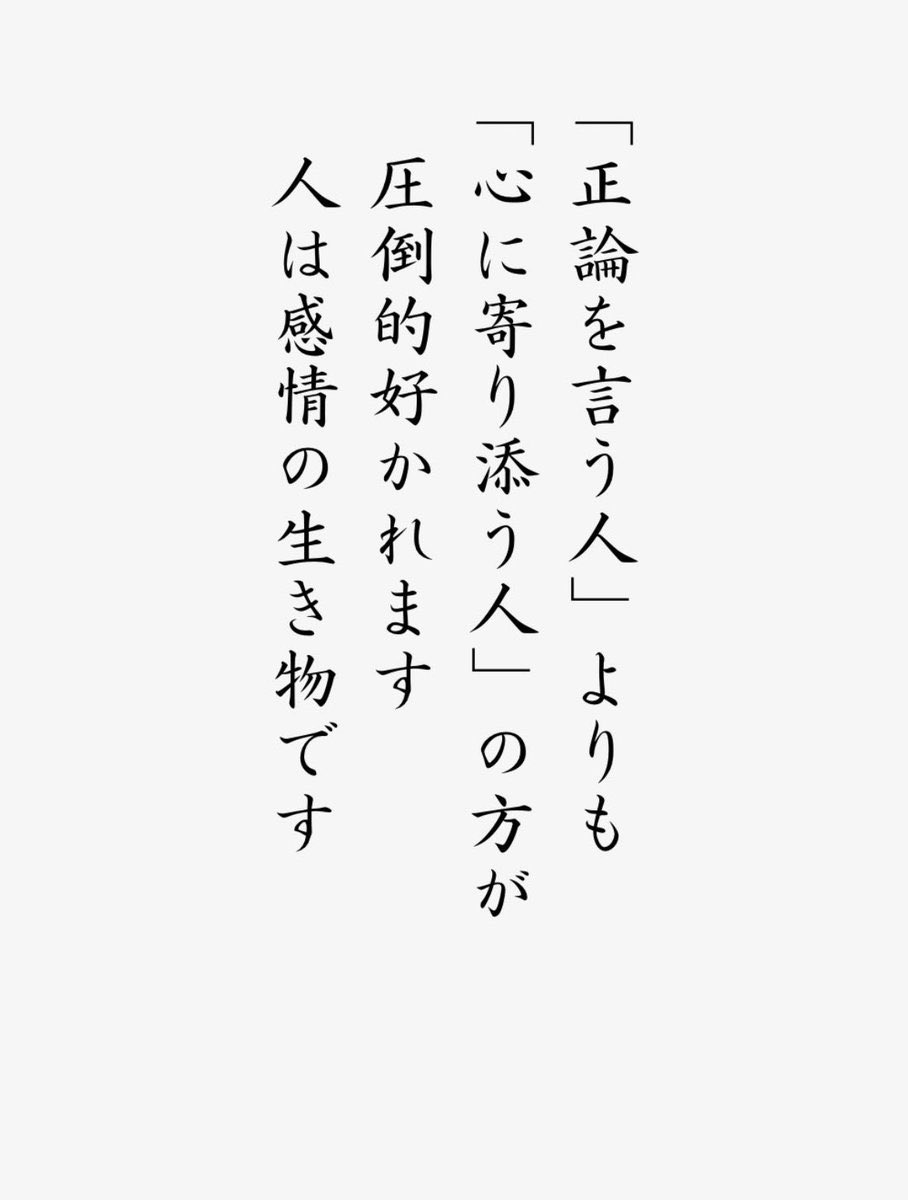 「正論を言う人」よりも
「心に寄り添う人」の方が
圧倒的好かれます
人は感情の生き物です